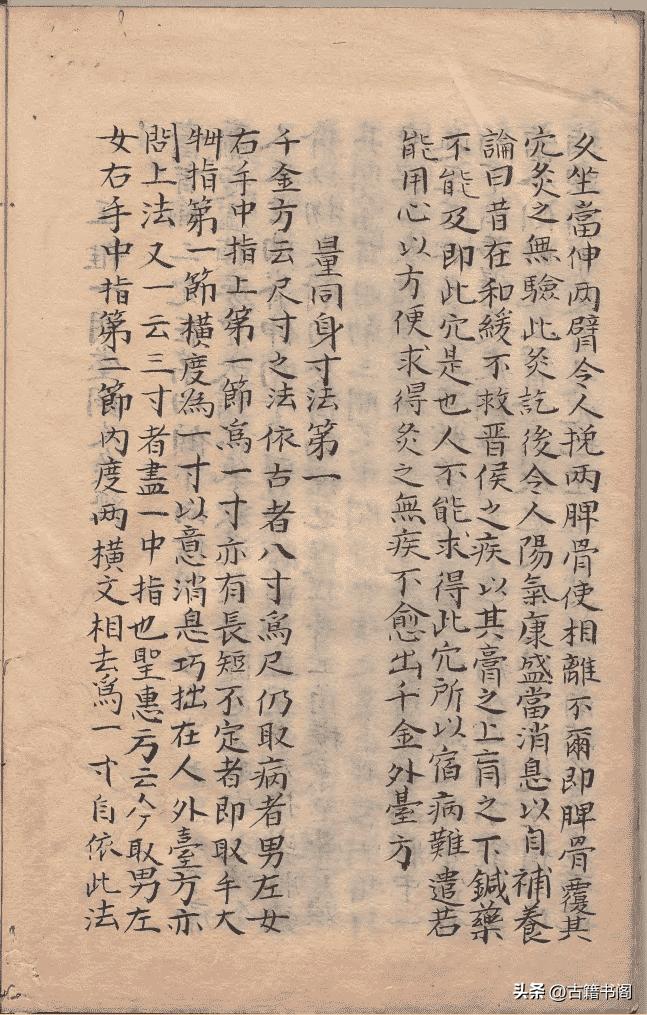 久坐當伸两臂令人挽两胛骨使相離不爾即胛骨覆其
穴灸之無驗此灸訖後令人陽氣康盛當消息以自補養
論曰昔在和緩不救晉侯之疾以其膏之上肓之下鍼藥
不能及即此穴是也人不能求得此穴所以宿病難遣若
能用心以方便求得灸之無疾不愈出千金外臺方
量同身寸法第一
千金方云尺寸之法依古者八寸爲尺仍取病者男左女
右手中指上第一節爲一寸亦有長短不定者即取手大
拇指第一節横度為一寸以意消息巧拙在人外臺方亦
同上法又一云三寸者盡一中指也聖惠方云今取男左
女右手中指第二節内度两横文相去爲一寸自依此法
头条@古籍书阁